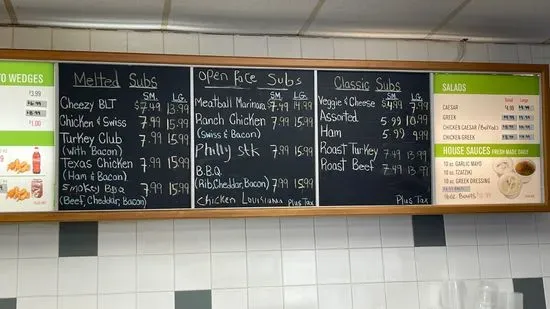 TO WEDGES
$3.99
$1.00
Melted Subs
SM. LG.
Cheezy BLT $7.49 13.99
Chicken & Swiss 7.99 15.99
Turkey Club 7.99 15.99
(With Bacon)
Texas Chicken 7.99 15.99
(Ham & Bacon)
Smokey BBQ 7.99 15.99
(Beef, Cheddar, Bacon)
Open Face Subs
SM. LG.
Meatball Marinara $7.99 14.99
Ranch Chicken 7.99 15.99
(Swiss & Bacon)
Philly Stk 7.99 15.99
B.B.Q. 7.99 15.99
(Rib, Cheddar, Bacon)
Chicken Louisiana Plus Tax
Classic Subs
SM. LG.
Veggie & Cheese $4.99 7.99
Assorted 5.99 9.99
Ham 5.99 9.99
Roast Turkey 7.49 13.99
Roast Beef 7.49 13.99
Plus Tax
SALADS
Small Large
CAESAR
GREEK
CHICKEN CAESAR
CHICKEN GREEK
HOUSE SAUCES FRESH MADE DAILY
10 oz GARLIC MAYO
10 oz TZATZIKI
10 oz GREEK DRESSING